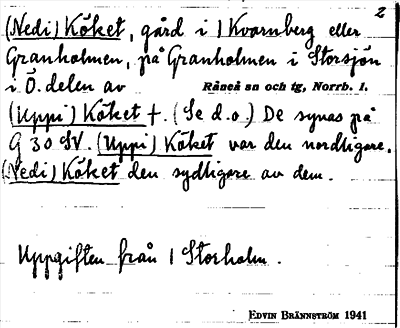 2
(Nedi) Köket, gård i 1 Kvarnberg eller
Granholmen, på Granholmen i Storsjön
i Ö. delen av Råneå sn och tg, Norrb. l.
(Uppi) Köket †. (Se d.o.) De synas på
G 30 SV. (Uppi) Köket var den nordligare,
(Nedi) Köket den sydligare av dem.
Uppgiften från 1 Storholm.
EDVIN BRÄNNSTRÖM 1941